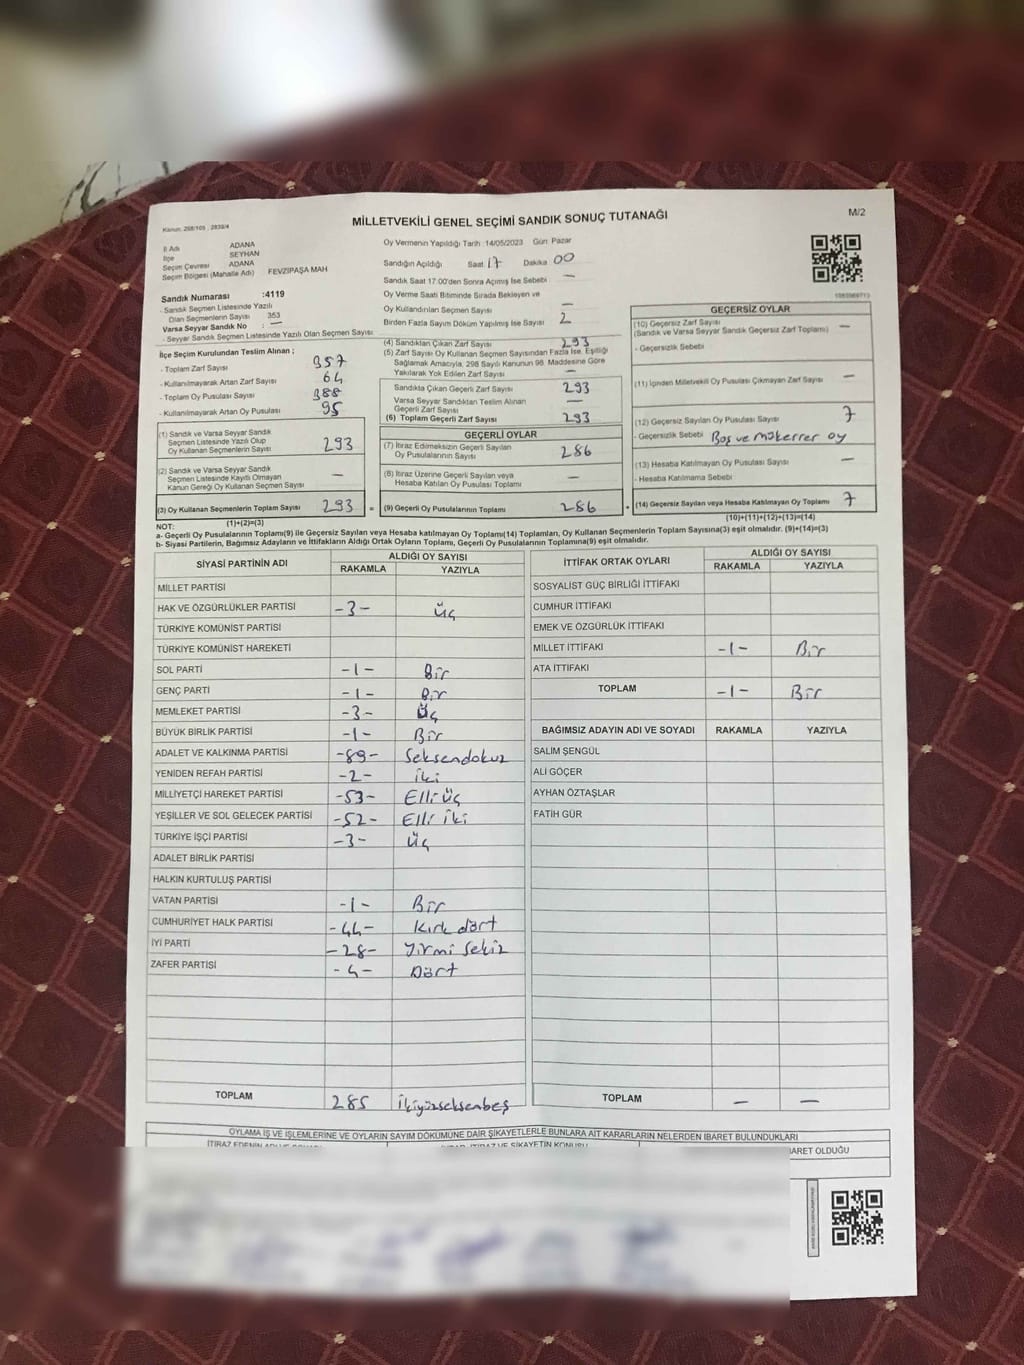 Kanun: 298/105 , 2839/4
MİLLETVEKİLİ GENEL SEÇİMİ SANDIK SONUÇ TUTANAĞI
M/2
İl Adı ADANA
İlçe SEYHAN
Seçim Çevresi ADANA
Seçim Bölgesi (Mahalle Adı) FEVZİPAŞA MAH
Sandık Numarası :4119
- Sandık Seçmen Listesinde Yazılı
Olan Seçmenlerin Sayısı 353
Varsa Seyyar Sandık No : —
- Seyyar Sandık Seçmen Listesinde Yazılı Olan Seçmen Sayısı:
İlçe Seçim Kurulundan Teslim Alınan ;
- Toplam Zarf Sayısı 357
- Kullanılmayarak Artan Zarf Sayısı 64
- Toplam Oy Pusulası Sayısı 388
- Kullanılmayarak Artan Oy Pusulası 95
(1) Sandık ve Varsa Seyyar Sandık
Seçmen Listesinde Yazılı Olup
Oy Kullanan Seçmenlerin Sayısı 293
(2) Sandık ve Varsa Seyyar Sandık
Seçmen Listesinde Kayıtlı Olmayan
Kanun Gereği Oy Kullanan Seçmen Sayısı —
(3) Oy Kullanan Seçmenlerin Toplam Sayısı 293 =
(1)+(2)=(3)
Oy Vermenin Yapıldığı Tarih :14/05/2023 Gün: Pazar
Sandığın Açıldığı Saat 17 Dakika 00
Sandık Saat 17:00'den Sonra Açımış İse Sebebi —
Oy Verme Saati Bitiminde Sırada Bekleyen ve
Oy Kullandırılan Seçmen Sayısı —
Birden Fazla Sayım Döküm Yapılmış İse Sayısı 2
(4) Sandıktan Çıkan Zarf Sayısı 293
(5) Zarf Sayısı Oy Kullanan Seçmen Sayısından Fazla İse, Eşitliği
Sağlamak Amacıyla, 298 Sayılı Kanunun 98. Maddesine Göre
Yakılarak Yok Edilen Zarf Sayısı —
Sandıkta Çıkan Geçerli Zarf Sayısı 293
Varsa Seyyar Sandıktan Teslim Alınan
Geçerli Zarf Sayısı —
(6) Toplam Geçerli Zarf Sayısı 293
GEÇERLİ OYLAR
(7) İtiraz Edilmeksizin Geçerli Sayılan
Oy Pusulalarının Sayısı 286
(8) İtiraz Üzerine Geçerli Sayılan veya
Hesaba Katılan Oy Pusulası Toplamı —
(9) Geçerli Oy Pusulalarının Toplamı 286 +
GEÇERSİZ OYLAR
(10) Geçersiz Zarf Sayısı
(Sandık ve Varsa Seyyar Sandık Geçersiz Zarf Toplamı) —
- Geçersizlik Sebebi
(11) İçinden Milletvekili Oy Pusulası Çıkmayan Zarf Sayısı —
(12) Geçersiz Sayılan Oy Pusulası Sayısı 7
- Geçersizlik Sebebi Boş ve mükerrer oy
(13) Hesaba Katılmayan Oy Pusulası Sayısı —
- Hesaba Katılmama Sebebi
(14) Geçersiz Sayılan veya Hesaba Katılmayan Oy Toplamı 7
(10)+(11)+(12)+(13)=(14)
NOT:
a- Geçerli Oy Pusulalarının Toplamı(9) ile Geçersiz Sayılan veya Hesaba katılmayan Oy Toplam(14) Toplamları, Oy Kullanan Seçmenlerin Toplam Sayısına(3) eşit olmalıdır. (9)+(14)=(3)
b- Siyasi Partilerin, Bağımsız Adayların ve İttifakların Aldığı Ortak Oyların Toplamı, Geçerli Oy Pusulalarının Toplamına(9) eşit olmalıdır.
SİYASİ PARTİNİN ADI ALDIĞI OY SAYISI
RAKAMLA YAZIYLA
MİLLET PARTİSİ
HAK VE ÖZGÜRLÜKLER PARTİSİ -3- Üç
TÜRKİYE KOMÜNİST PARTİSİ
TÜRKİYE KOMÜNİST HAREKETİ
SOL PARTİ -1- Bir
GENÇ PARTİ -1- Bir
MEMLEKET PARTİSİ -3- Üç
BÜYÜK BİRLİK PARTİSİ -1- Bir
ADALET VE KALKINMA PARTİSİ -89- Seksendokuz
YENİDEN REFAH PARTİSİ -2- İki
MİLLİYETÇİ HAREKET PARTİSİ -53- Elli üç
YEŞİLLER VE SOL GELECEK PARTİSİ -52- Elli iki
TÜRKİYE İŞÇİ PARTİSİ -3- Üç
ADALET BİRLİK PARTİSİ
HALKIN KURTULUŞ PARTİSİ
VATAN PARTİSİ -1- Bir
CUMHURİYET HALK PARTİSİ -44- Kırk dört
İYİ PARTİ -28- Yirmi sekiz
ZAFER PARTİSİ -4- Dört
TOPLAM 285 İkiyüzseksenbeş
İTTİFAK ORTAK OYLARI ALDIĞI OY SAYISI
RAKAMLA YAZIYLA
SOSYALİST GÜÇ BİRLİĞİ İTTİFAKI
CUMHUR İTTİFAKI
EMEK VE ÖZGÜRLÜK İTTİFAKI
MİLLET İTTİFAKI -1- Bir
ATA İTTİFAKI
TOPLAM -1- Bir
BAĞIMSIZ ADAYIN ADI VE SOYADI RAKAMLA YAZIYLA
SALİM ŞENGÜL
ALİ GÖÇER
AYHAN ÖZTAŞLAR
FATİH GÜR
TOPLAM — —
OYLAMA İŞ VE İŞLEMLERİNE VE OYLARIN SAYIM DÖKÜMÜNE DAİR ŞİKAYETLERLE BUNLARA AİT KARARLARIN NELERDEN İBARET BULUNDUKLARI